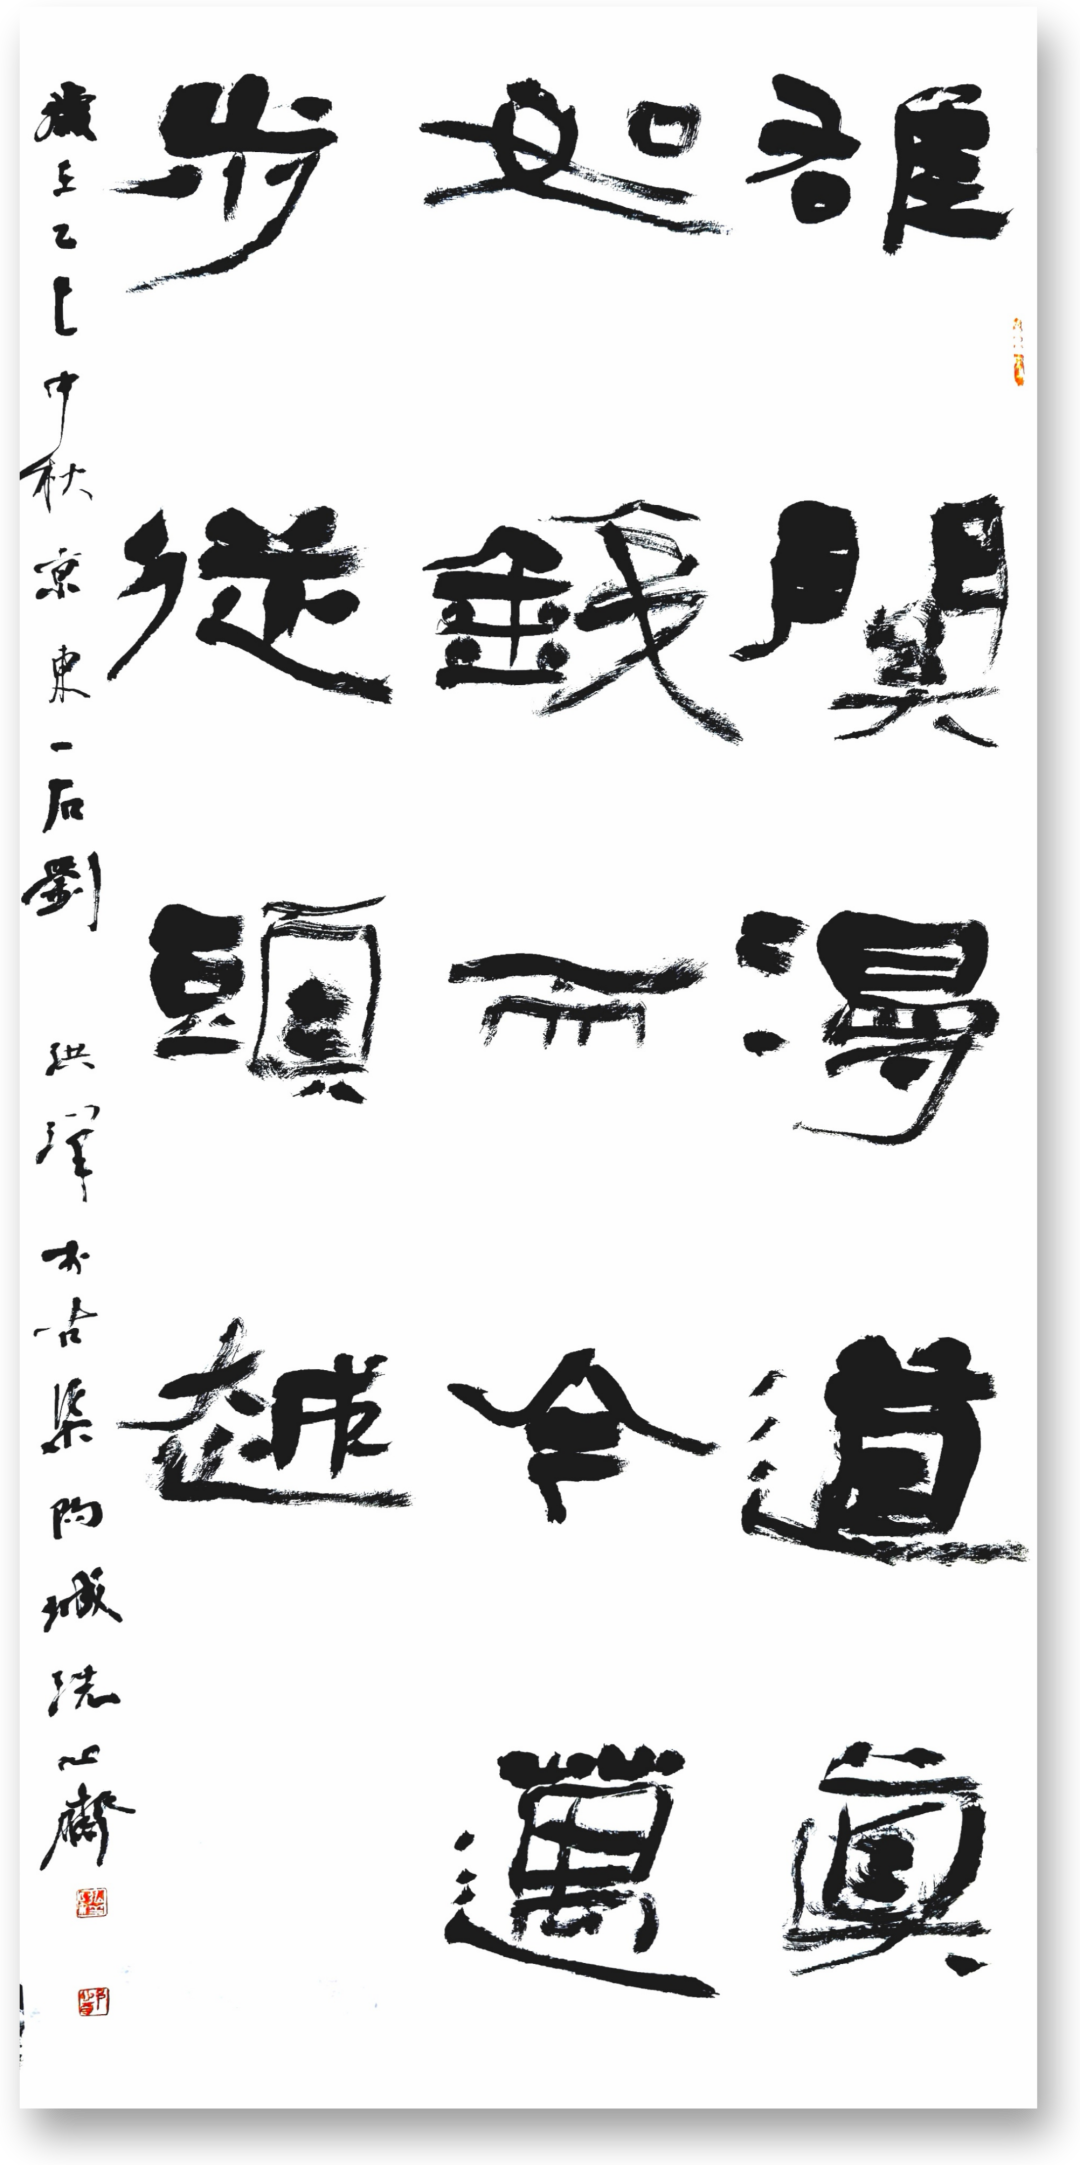 雄關漫道真
如鐵而今邁
步從頭越
歲在乙巳中秋京東一石劉洪澤於古渠陽城洗心齋